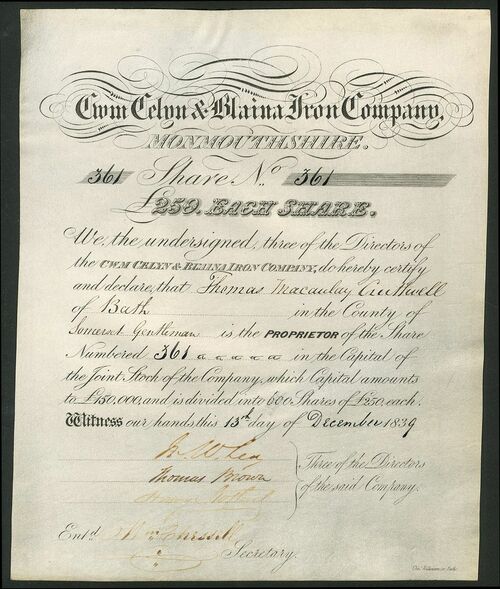 Cwm Celyn & Blaina Iron Company,
MONMOUTHSHIRE.
361 Share No. 361
£250. EACH SHARE.
We, the undersigned, three of the Directors of
the CWM CELYN & BLAINA IRON COMPANY, do hereby certify
and declare, that Thomas Macaulay Cruttwell
of Bath in the County of
Somerset Gentleman is the PROPRIETOR of the Share
Numbered 361 in the Capital of
the Joint Stock of the Company, which Capital amounts
to £150,000, and is divided into 600 Shares of £250, each.
Witness our hands this 13th day of December 1839
Thomas Brown
Three of the Directors
of the said Company.
Entd.
Secretary.